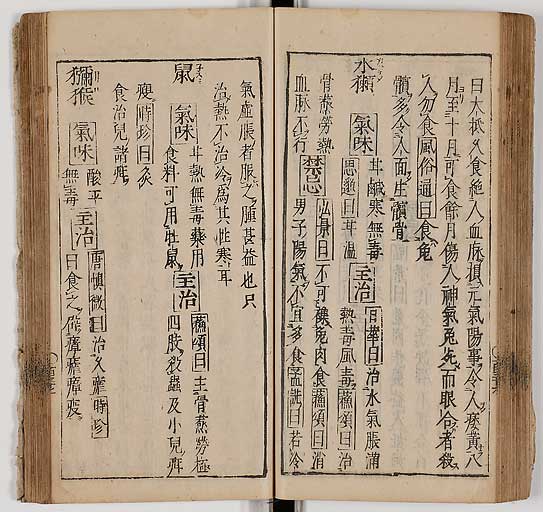 曰大抵久食絶人血脉損元氣陽事令人痿黄八
月至十月可食餘月傷人神氣兎死而眼合者殺
人勿食風俗通曰食兎
髓多令人面生髓骨
水獺 氣味 甘鹹寒無毒 主治 日華曰治水氣脹滿
思邈曰甘温 熱毒風毒蘇頌曰治
骨蒸勞熱
血脉不行 禁忌 弘景曰不可雜兎肉食蘇頌曰消
男子陽氣不宜多食孟詵曰若冷
氣虚脹者服之甚益也只
治熱不治冷爲其性寒耳
鼠 氣味 甘熱無毒藥用
食料可用牡鼠 主治 蘇頌曰主骨蒸勞極
四肢殺蟲及小兒疳
瘦時珍曰炙
食治兒諸疳
獼猴 氣味 酸平
無毒 主治 唐慎微曰治久瘧時珍
曰食之辟瘴疫